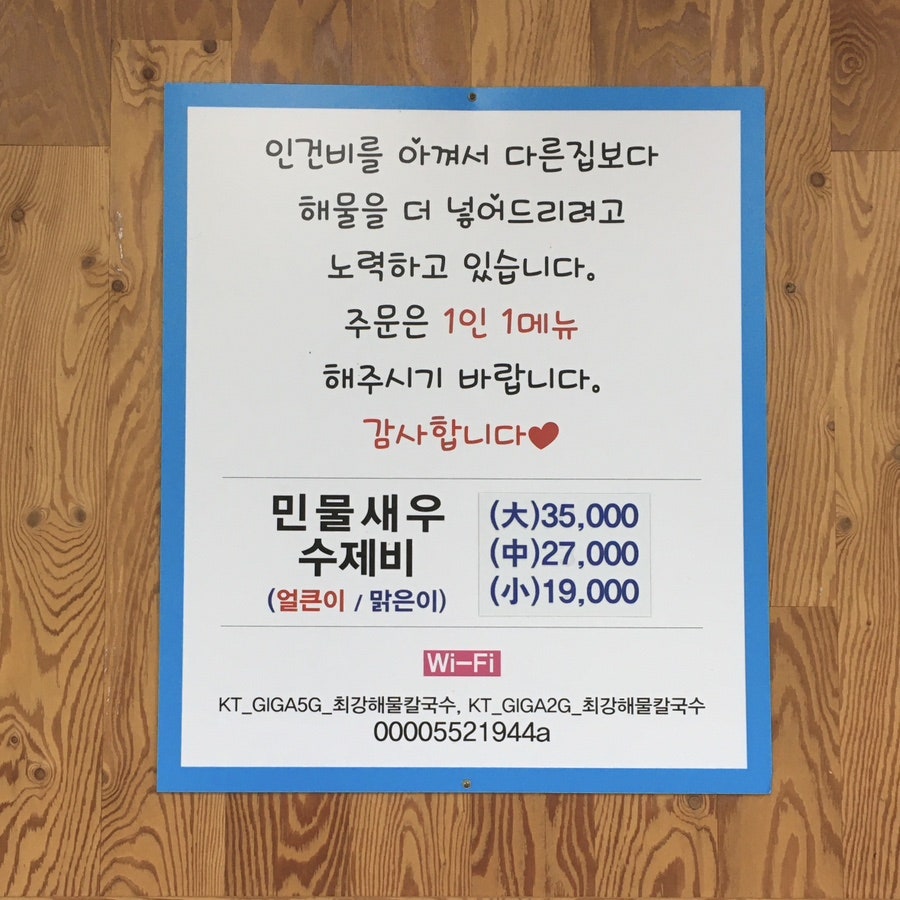 인건비를 아껴서 다른집보다
해물을 더 넣어드리려고
노력하고 있습니다.
주문은 1인 1메뉴
해주시기 바랍니다.
감사합니다♥
민물새우
수제비
(얼큰이 / 맑은이)
(大)35,000
(中)27,000
(小)19,000
Wi-Fi
KT_GIGA5G_최강해물칼국수, KT_GIGA2G_최강해물칼국수
00005521944a